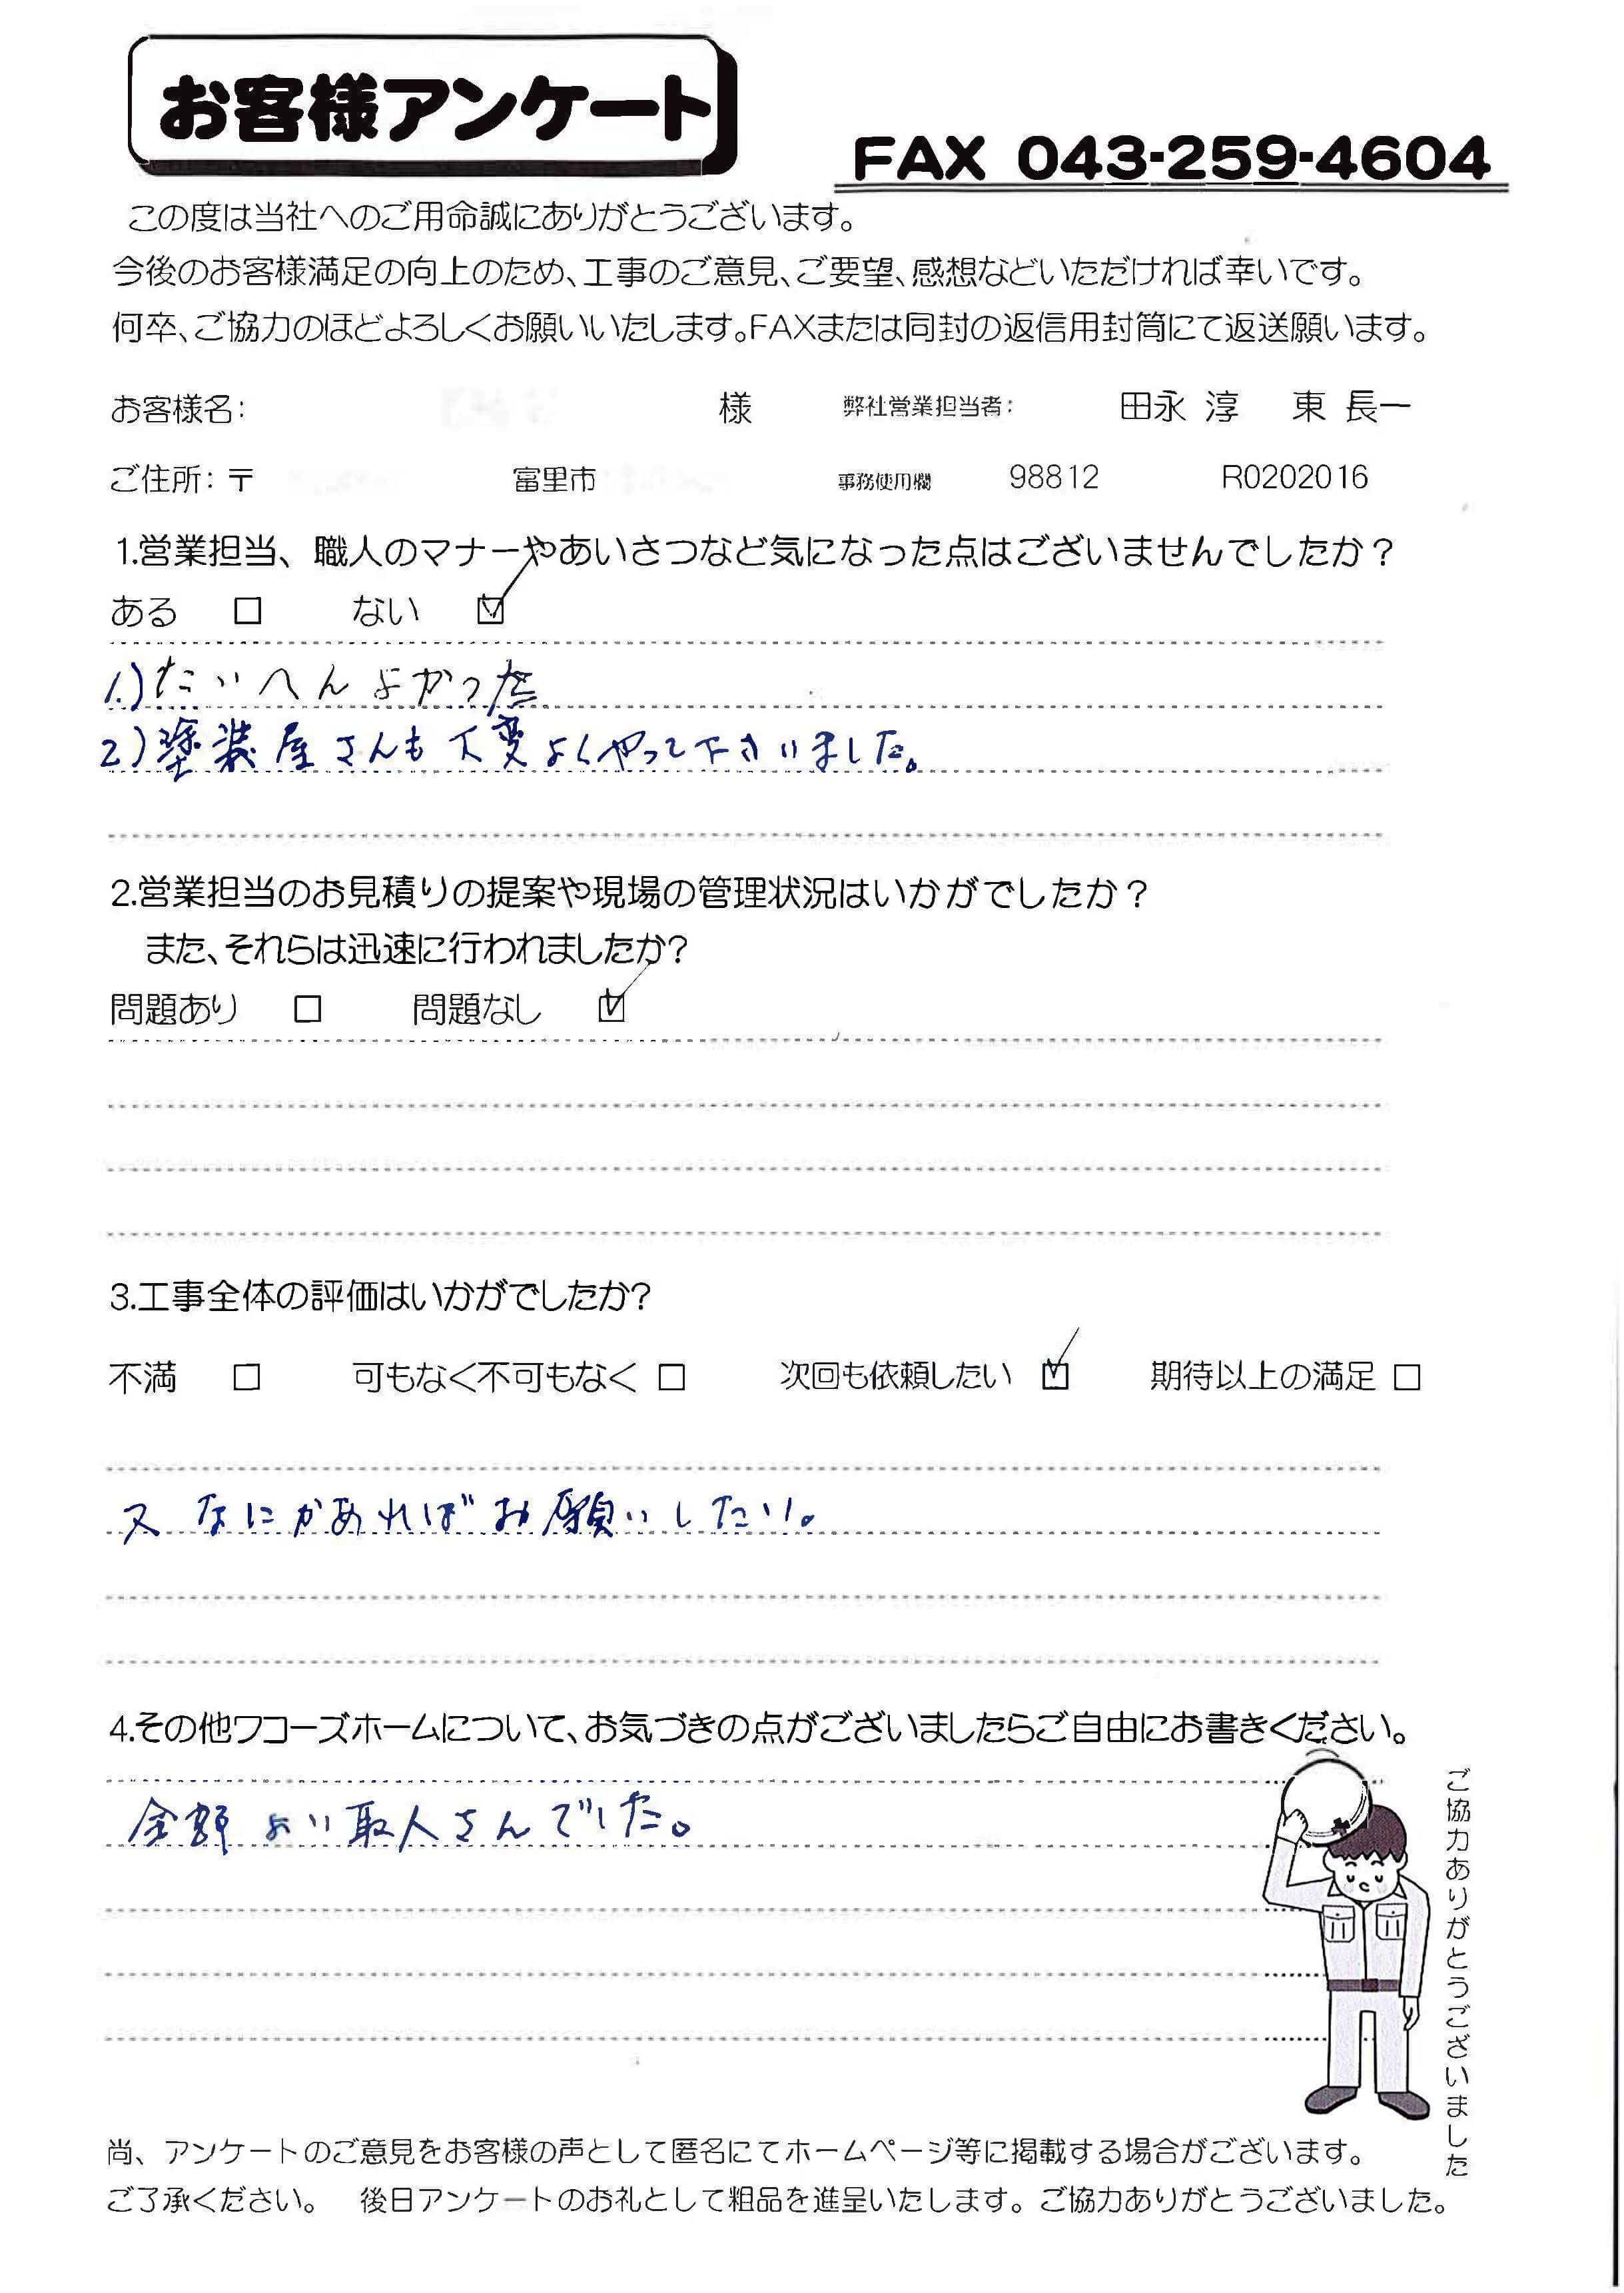 お客様アンケート
FAX 043-259-4604
この度は当社へのご用命誠にありがとうございます。
今後のお客様満足の向上のため、工事のご意見、ご要望、感想などいただければ幸いです。
何卒、ご協力のほどよろしくお願いいたします。FAXまたは同封の返信用封筒にて返送願います。
お客様名： 様 弊社営業担当者： 田永 淳 東 長一
ご住所：〒 富里市 事務使用欄 98812 R0202016
1.営業担当、職人のマナーやあいさつなど気になった点はございませんでしたか？
ある □ ない ☑
1.)たいへんよかった
2)塗装屋さんも大変よくやって下さいました。
2.営業担当のお見積りの提案や現場の管理状況はいかがでしたか？
また、それらは迅速に行われましたか？
問題あり □ 問題なし ☑
3.工事全体の評価はいかがでしたか？
不満 □ 可もなく不可もなく □ 次回も依頼したい ☑ 期待以上の満足 □
又なにかあればお願いしたい。
4.その他ワコーズホームについて、お気づきの点がございましたらご自由にお書きください。
よい 人さんでした。
ご協力ありがとうございました
尚、アンケートのご意見をお客様の声として匿名にてホームページ等に掲載する場合がございます。
ご了承ください。 後日アンケートのお礼として粗品を進呈いたします。ご協力ありがとうございました。